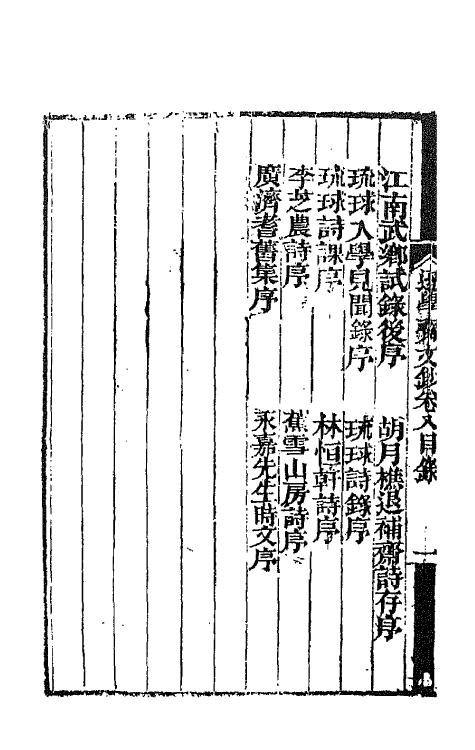 遜學齋文鈔卷八目錄
一
江南武鄉試錄後序
胡月樵退補齋詩存序
琉球入學見聞錄序
琉球詩錄序
琉球詩課序
林恒軒詩序
李芝農詩序
蕉雪山房詩序
廣濟耆舊集序
永嘉先生時文序